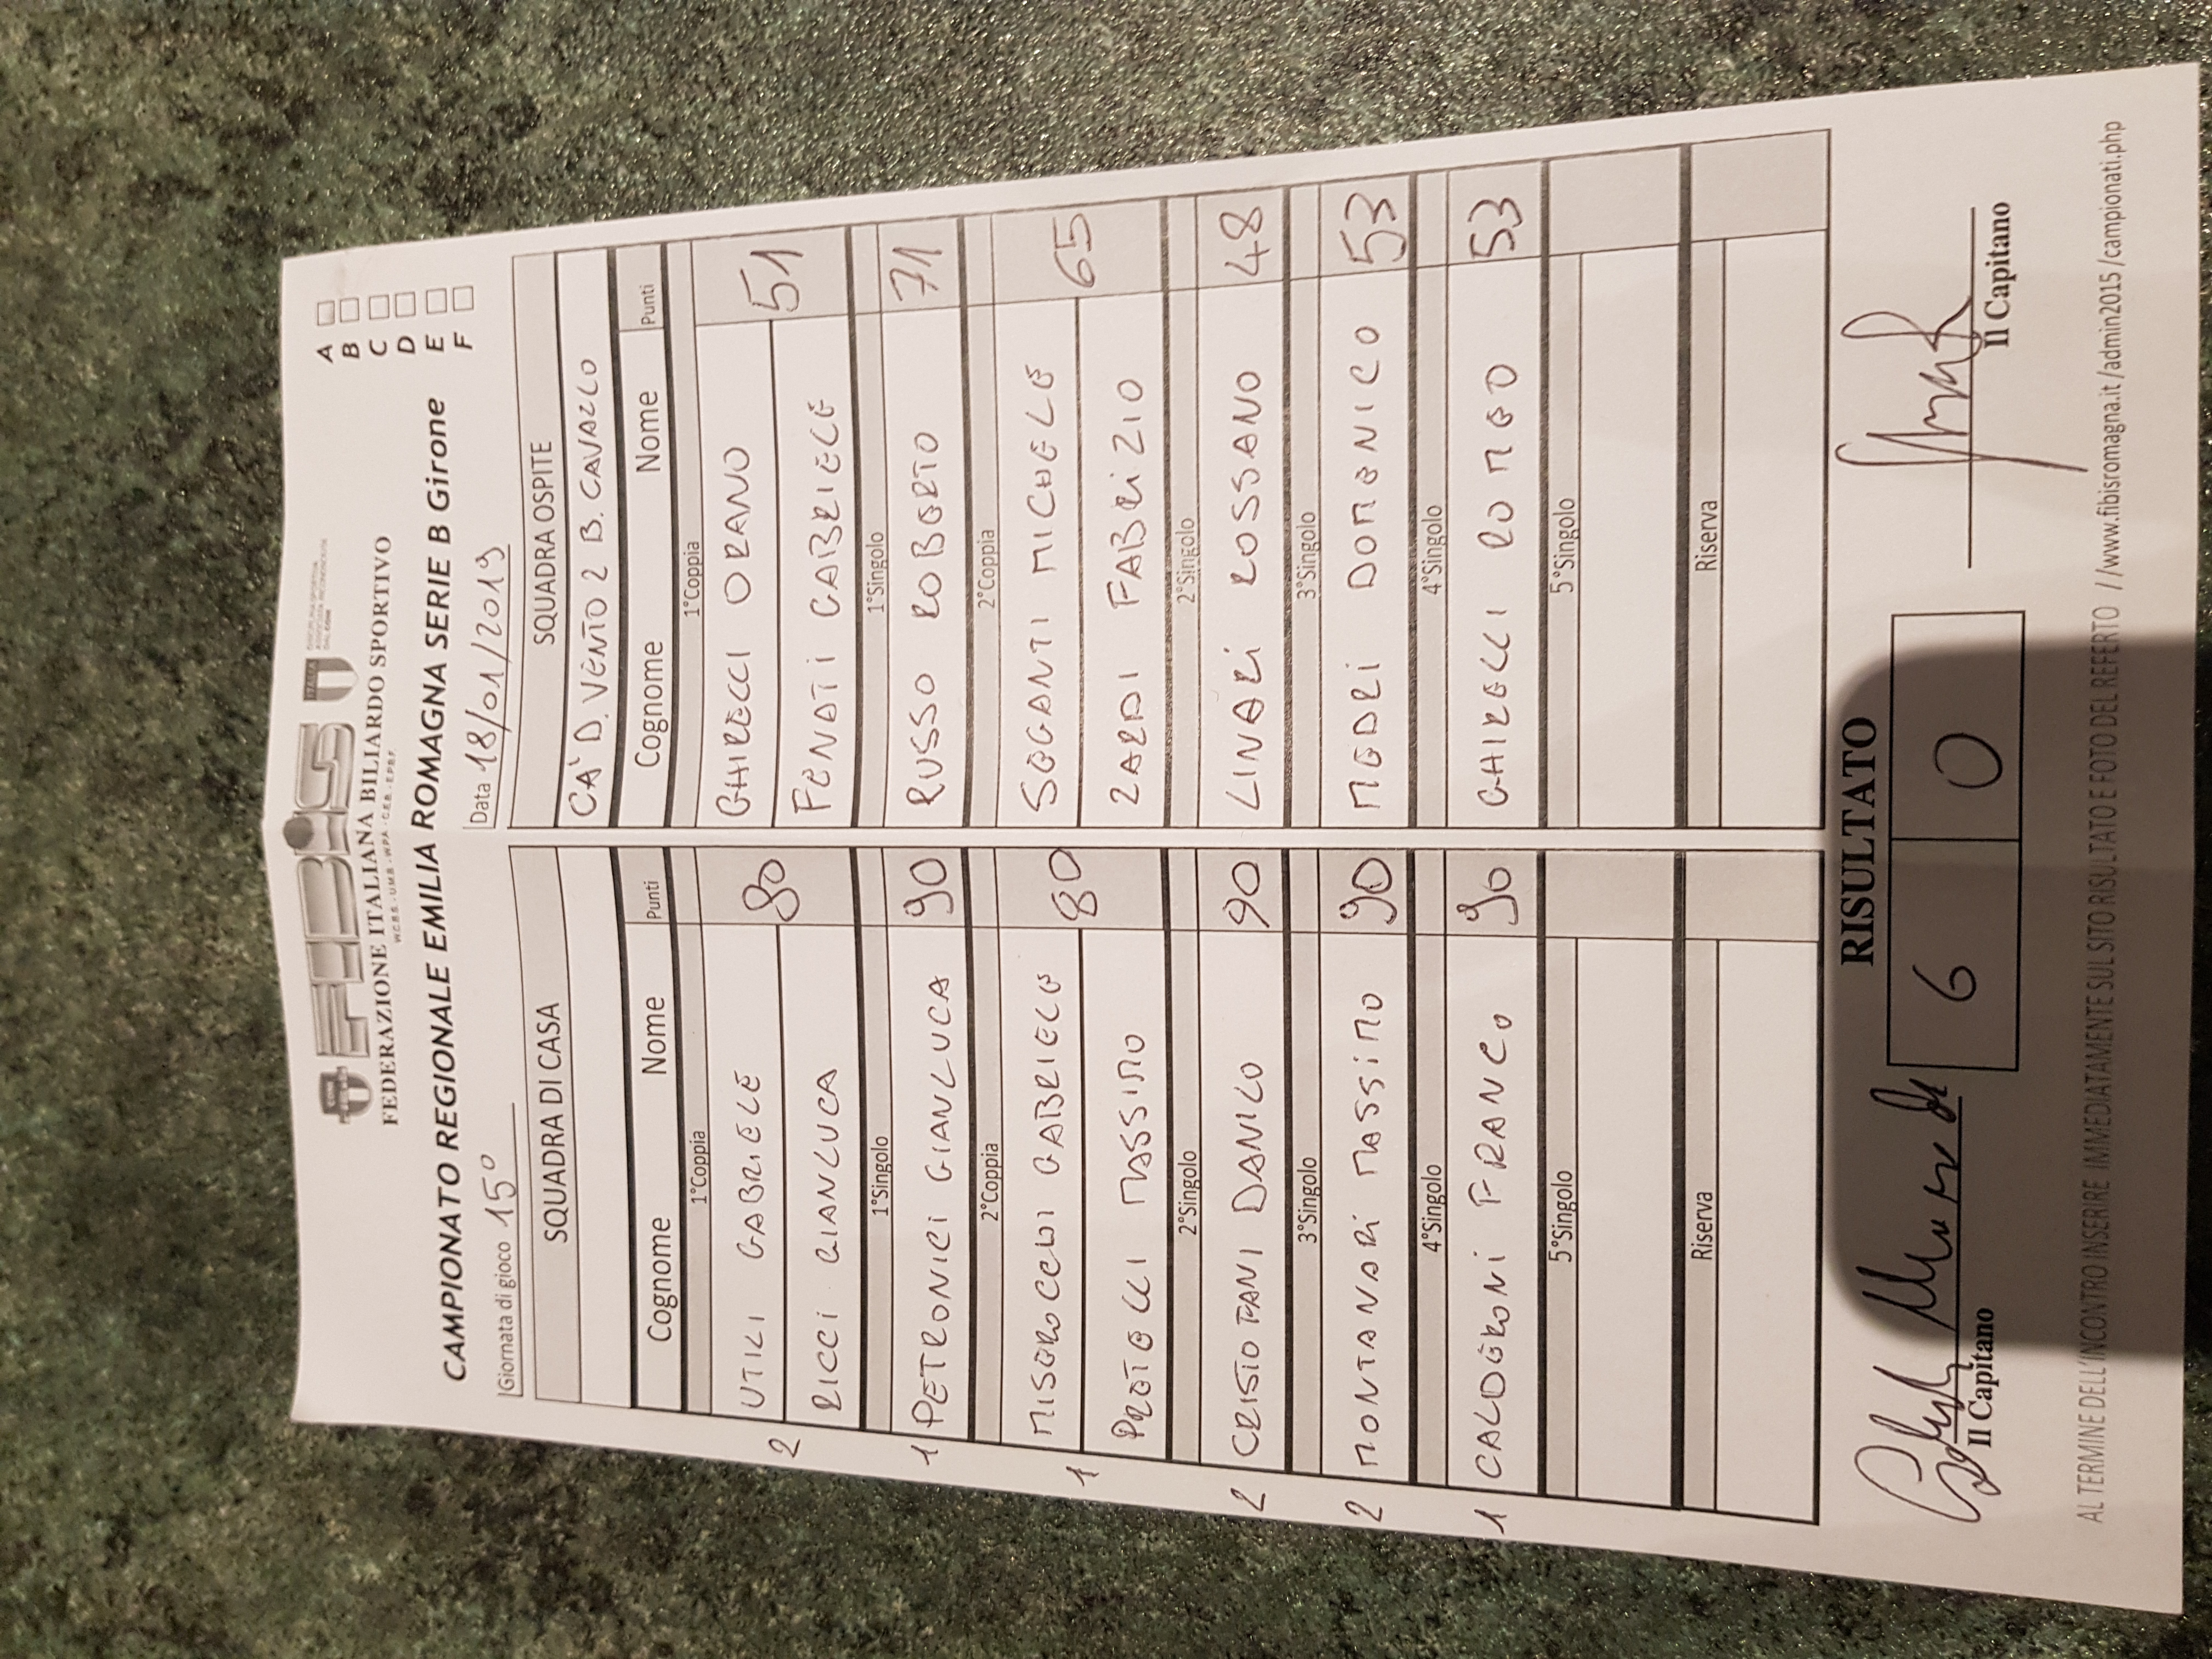 FIBIS
ITALIA
FEDERAZIONE ITALIANA BILIARDO SPORTIVO
W.C.B.S. - U.M.B. - W.P.A. - C.E.B. - E.P.B.F.
CAMPIONATO REGIONALE EMILIA ROMAGNA SERIE B Girone
A
B
C
D
E
F
Giornata di gioco 15°
Data 18/01/2019
SQUADRA DI CASA SQUADRA OSPITE
CA' D. VENTO 2 B. CAVALLO
Cognome Nome Punti Cognome Nome Punti
1°Coppia 1°Coppia
2 UTILI GABRIELE 80 GHIRELLI ORANO 51
RICCI GIANLUCA FENATI GABRIELE
1°Singolo 1°Singolo
1 PETRONICI GIANLUCA 90 RUSSO ROBERTO 71
2°Coppia 2°Coppia
1 MISEROCCHI GABRIELE 80 SEGANTI MICHELE 65
PROTELLI MASSIMO ZARDI FABRIZIO
2°Singolo 2°Singolo
2 CRISTOFANI DANILO 90 LINARI ROSSANO 48
3°Singolo 3°Singolo
2 MONTANARI MASSIMO 90 MEDRI DOMENICO 53
4°Singolo 4°Singolo
1 CALDERONI FRANCO 90 GHIRELLI ROMEO 53
5°Singolo 5°Singolo
Riserva Riserva
RISULTATO
6 0
Il Capitano Il Capitano
AL TERMINE DELL'INCONTRO INSERIRE IMMEDIATAMENTE SUL SITO RISULTATO E FOTO DEL REFERTO //www.fibisromagna.it/admin2015/campionati.php